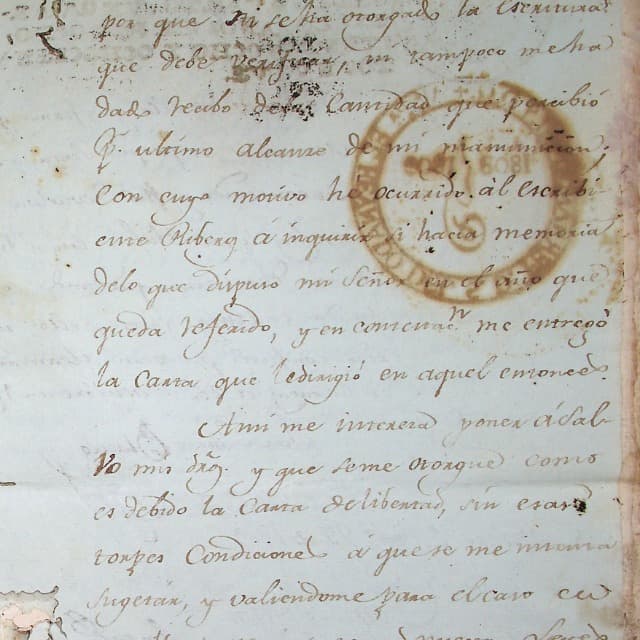 por que ni se ha otorgado la Escritura
que debe verificar, ni tampoco me ha
dado recibo de la Cantidad que percibió
Pr. ultimo alcanze de mi manumision,
con cuyo motivo hé ocurrido al Escribi-
ente Ribera á inquirir si hacia memoria
delo que dispuso mi Señor en el año que
queda referido, y en contestac.n me entregó
la Carta que le dirigió en aquel entonces.
Ami me interesa poner á Sal-
vo mis dros. y que seme otorgue como
es debido la Carta de libertad, sin esas
torpes Condiciones á que se me intenta
sugetar, y valiendome para el caso en